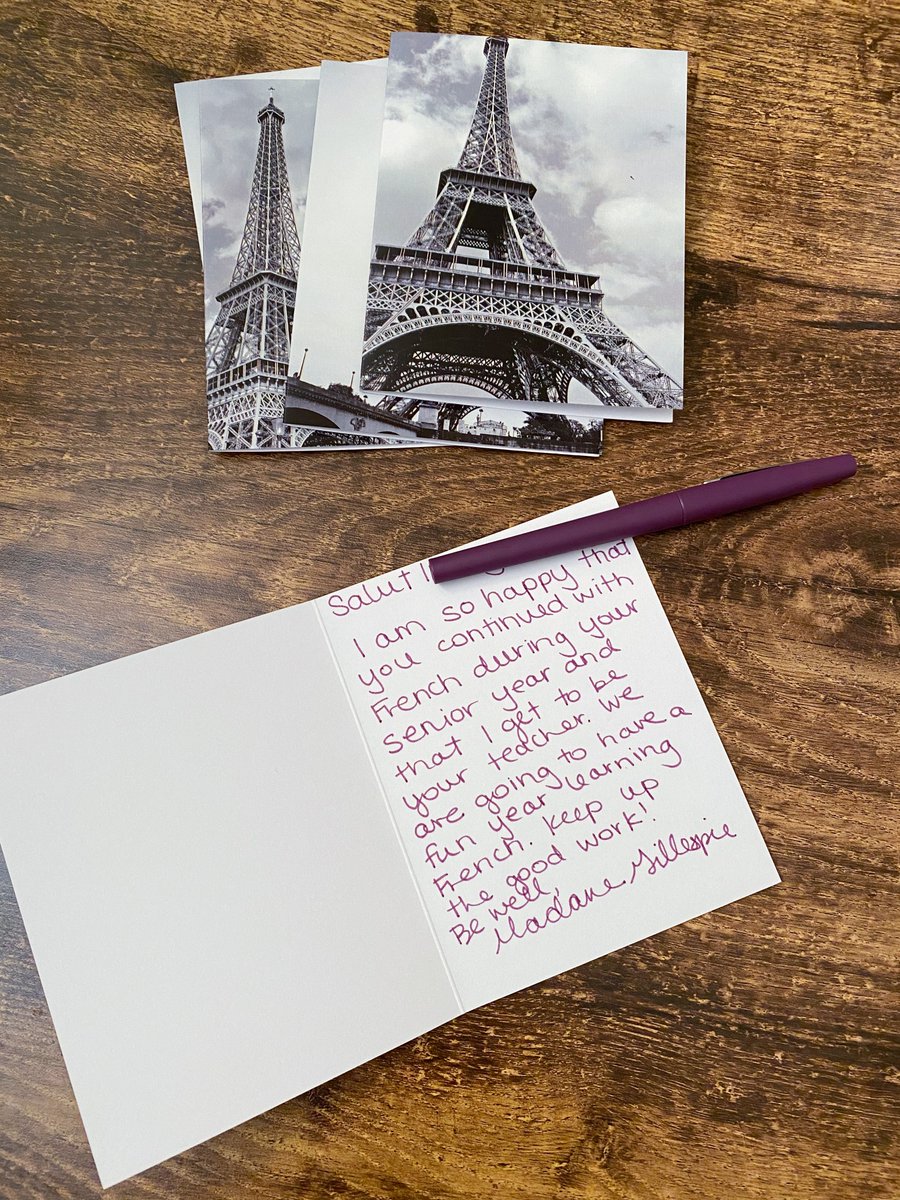 Salut
I am so happy that
you continued with
French during your
senior year and
that I get to be
your teacher. We
are going to have a
fun year learning
French. Keep up
the good work!
Be well,
Madame Gillespie